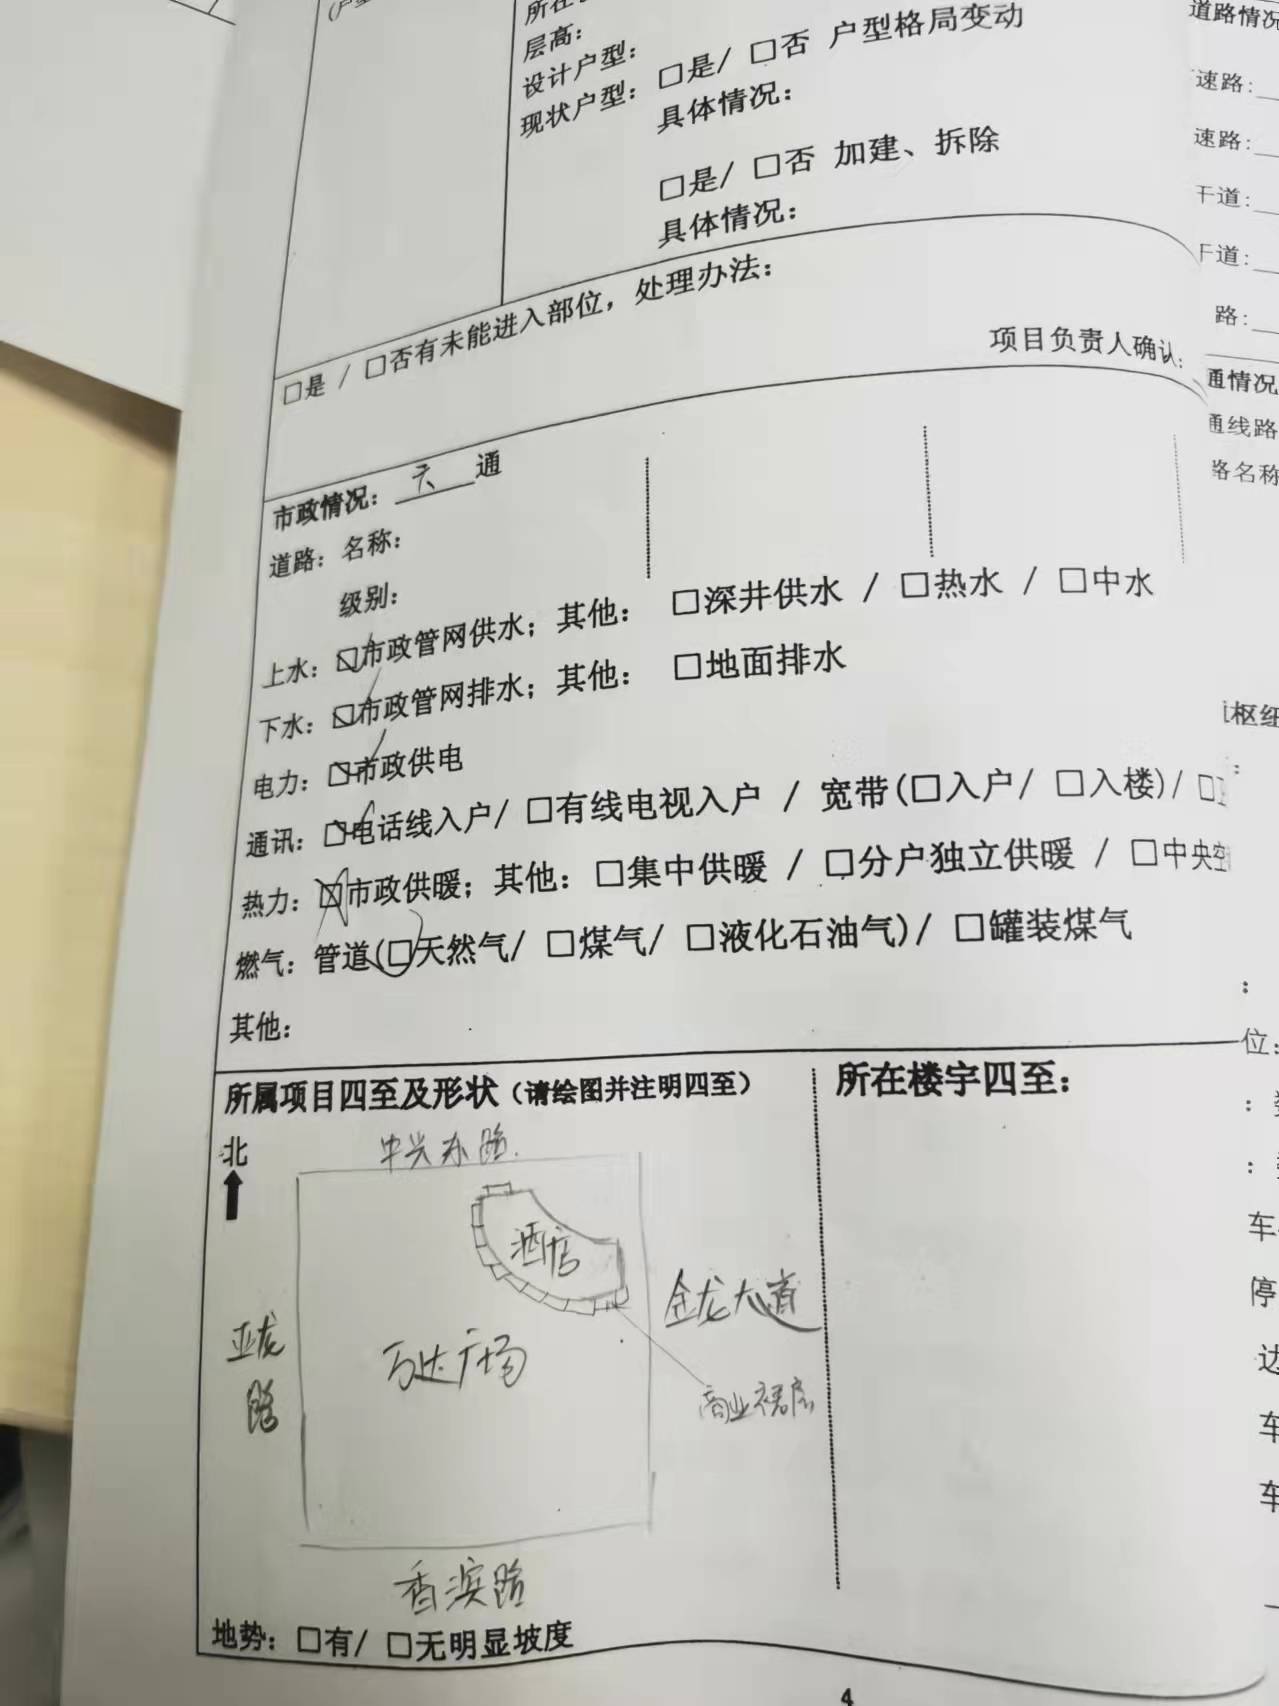 层高：
设计户型：
现状户型：□是/ □否 户型格局变动
具体情况：
□是/ □否 加建、拆除
具体情况：
□是 / □否有未能进入部位，处理办法：
项目负责人确认：
市政情况：六通
道路：名称：
级别：
上水：☑市政管网供水；其他： □深井供水 / □热水 / □中水
下水：☑市政管网排水；其他： □地面排水
电力：☑市政供电
通讯：☑电话线入户/ □有线电视入户 / 宽带(□入户/ □入楼)/ □
热力：☒市政供暖；其他：□集中供暖 / □分户独立供暖 / □中央空
燃气：管道(☑天然气/ □煤气/ □液化石油气)/ □罐装煤气
其他：
所属项目四至及形状（请绘图并注明四至）
北
中兴东路
酒店
亚龙路
万达广场
金龙大道
商业裙房
香滨路
地势：□有/ □无明显坡度
所在楼宇四至：
4
道路情况
速路：
速路：
干道：
干道：
路：
通情况
通线路
路名称
枢纽
：
：
位：
：
：
车
停
边
车
车